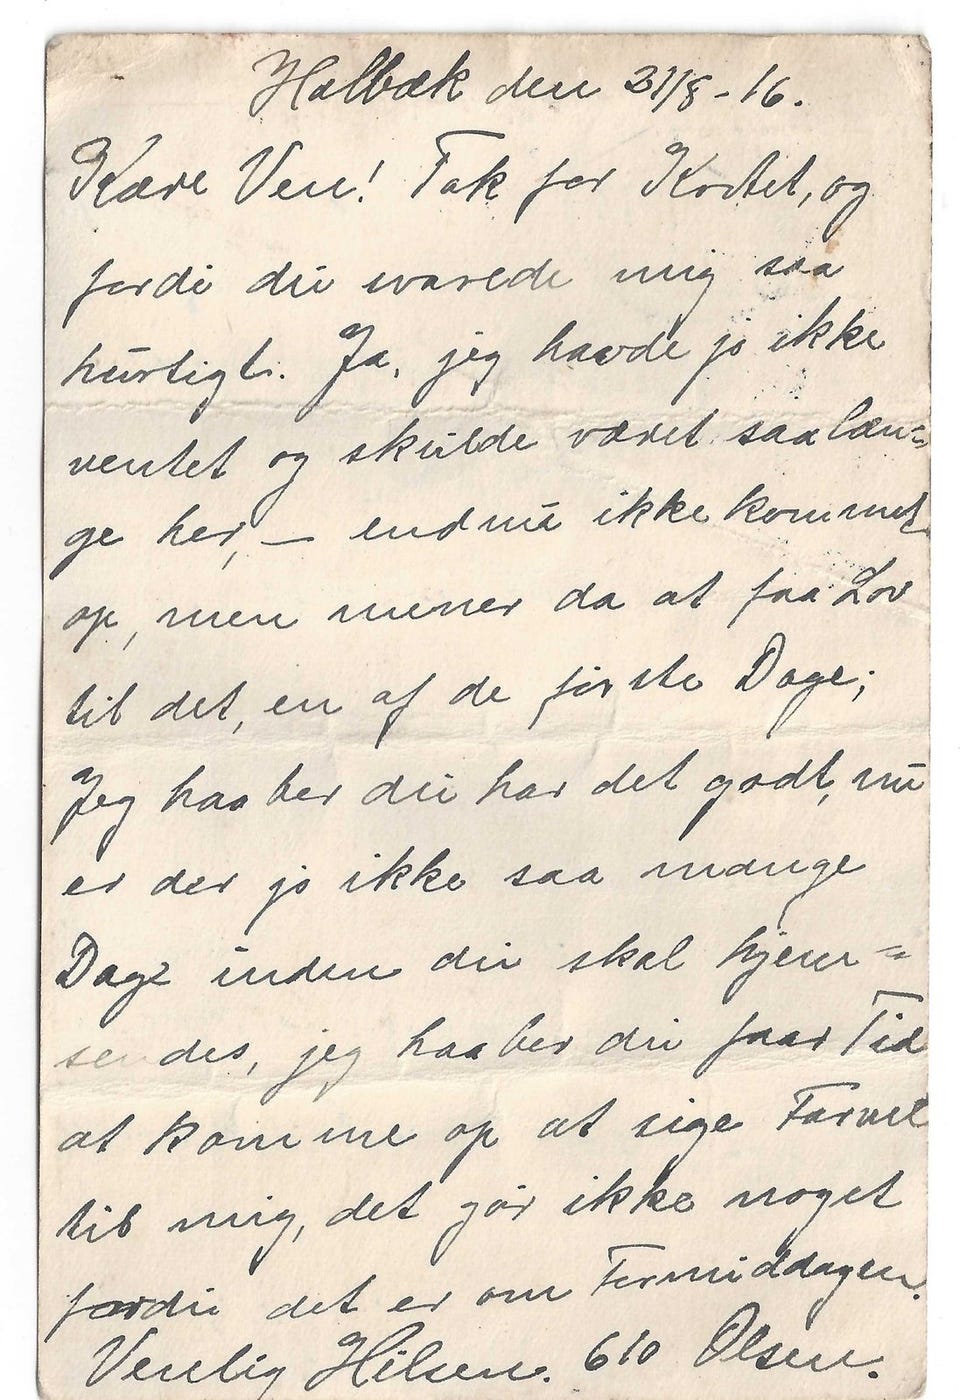 Holbæk den 31/8 - 16.
Kære Ven! Tak for Kortet, og
fordi du svarede mig saa
hurtigt. Ja, jeg havde jo ikke
ventet og skulde været saa læn=
ge her, — endnu ikke kommet
op, men mener da at faa Lov
til det, en af de første Dage;
Jeg haaber du har det godt, nu
er der jo ikke saa mange
Dage inden du skal hjem=
sendes, jeg haaber du faar Tid
at komme op at sige Farvel
til mig, det gør ikke noget
fordi det er om Formiddagen.
Venlig Hilsen. 610 Olsen.